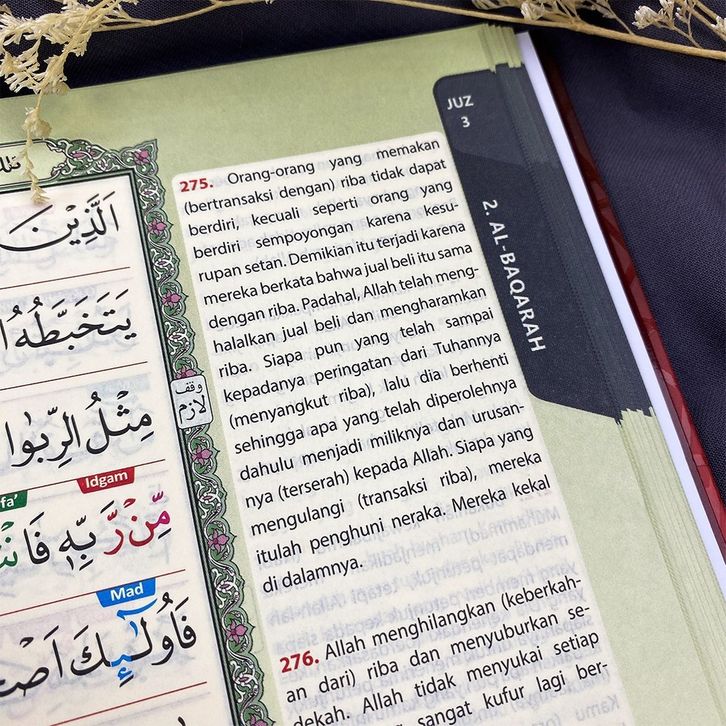 JUZ
3
2. AL-BAQARAH
الَّذِيْنَ
يَتَخَبَّطُهُ
مِثْلُ الرِّبٰوا
وقف
لازم
Idgam
مِّنْ رَّبِّهٖ
Mad
فَاُولٰۤىِٕكَ
275. Orang-orang yang memakan
(bertransaksi dengan) riba tidak dapat
berdiri, kecuali seperti orang yang
berdiri sempoyongan karena kesu-
rupan setan. Demikian itu terjadi karena
mereka berkata bahwa jual beli itu sama
dengan riba. Padahal, Allah telah meng-
halalkan jual beli dan mengharamkan
riba. Siapa pun yang telah sampai
kepadanya peringatan dari Tuhannya
(menyangkut riba), lalu dia berhenti
sehingga apa yang telah diperolehnya
dahulu menjadi miliknya dan urusan-
nya (terserah) kepada Allah. Siapa yang
mengulangi (transaksi riba), mereka
itulah penghuni neraka. Mereka kekal
di dalamnya.
276. Allah menghilangkan (keberkah-
an dari) riba dan menyuburkan se-
dekah. Allah tidak menyukai setiap
sangat kufur lagi ber-